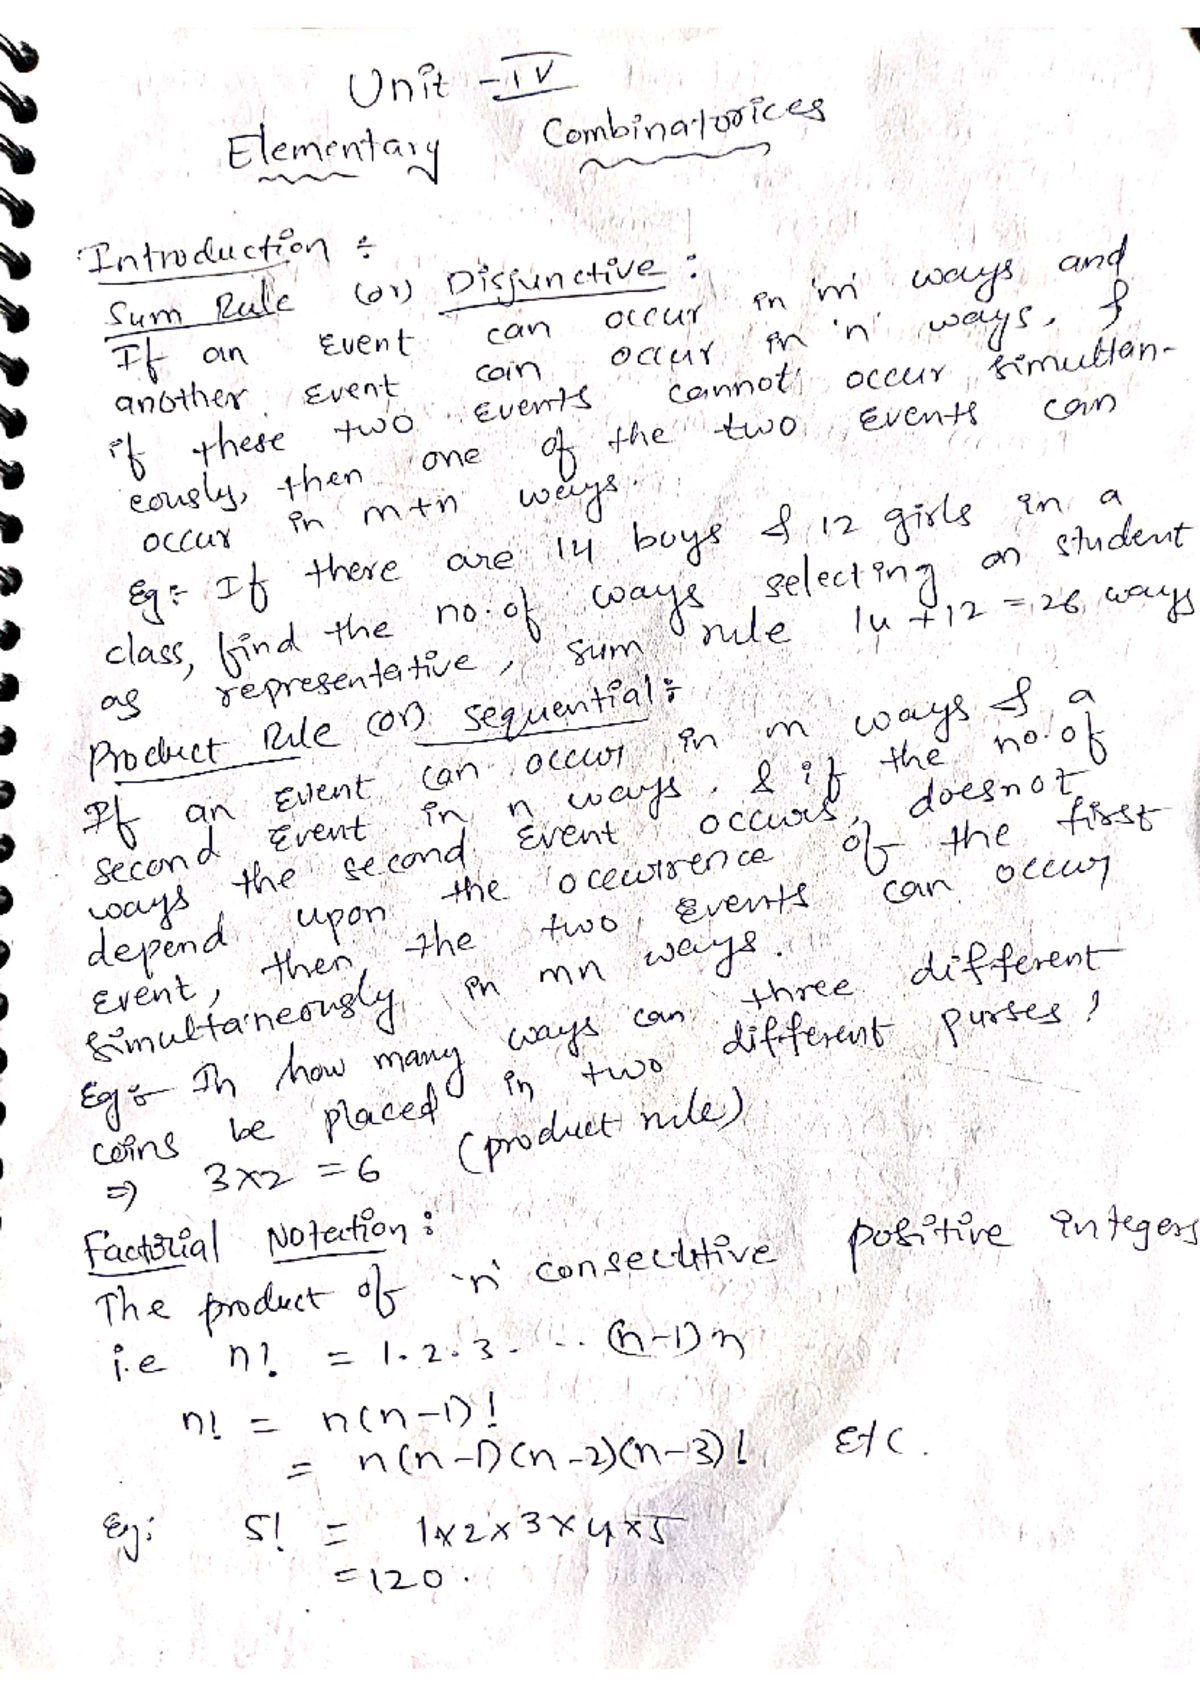 Unit - IV
Elementary Combinatorices
Introduction :
Sum Rule (or) Disjunctive :
If an Event can occur in 'm' ways and
another Event can occur in 'n' ways, &
if these two Events cannot occur simultan-
eously, then one of the two Events can
occur in m+n ways.
Eg:- If there are 14 boys & 12 girls in a
class, find the no. of ways selecting an student
as representative, sum rule 14 + 12 = 26 ways
Product Rule (or) sequential :
If an Event can occur in m ways & a
second Event in n ways. & if the no. of
ways the second Event occurs, doesnot
depend upon the ocewrrence of the first
Event, then the two Events can occur
simultaneously in mn ways.
Eg:- In how many ways can three different
coins be placed in two different purses?
=> 3x2 = 6 (product rule)
Factorial Notation :
The product of 'n' consecutive positive integers
i.e n! = 1. 2. 3. ... (n-1) n
n! = n(n-1)!
= n(n-1)(n-2)(n-3)! Etc.
Eg: 5! = 1x2x3x4x5
=120.